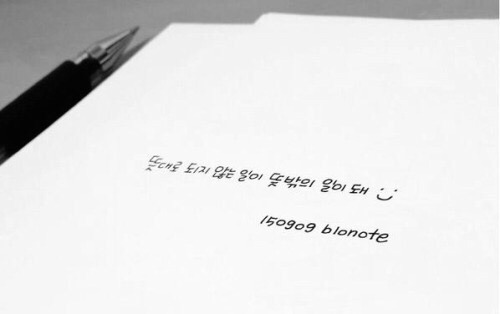 뜻대로 되지 않는 일이 뜻밖의 일이 돼 :)
150909 blonote